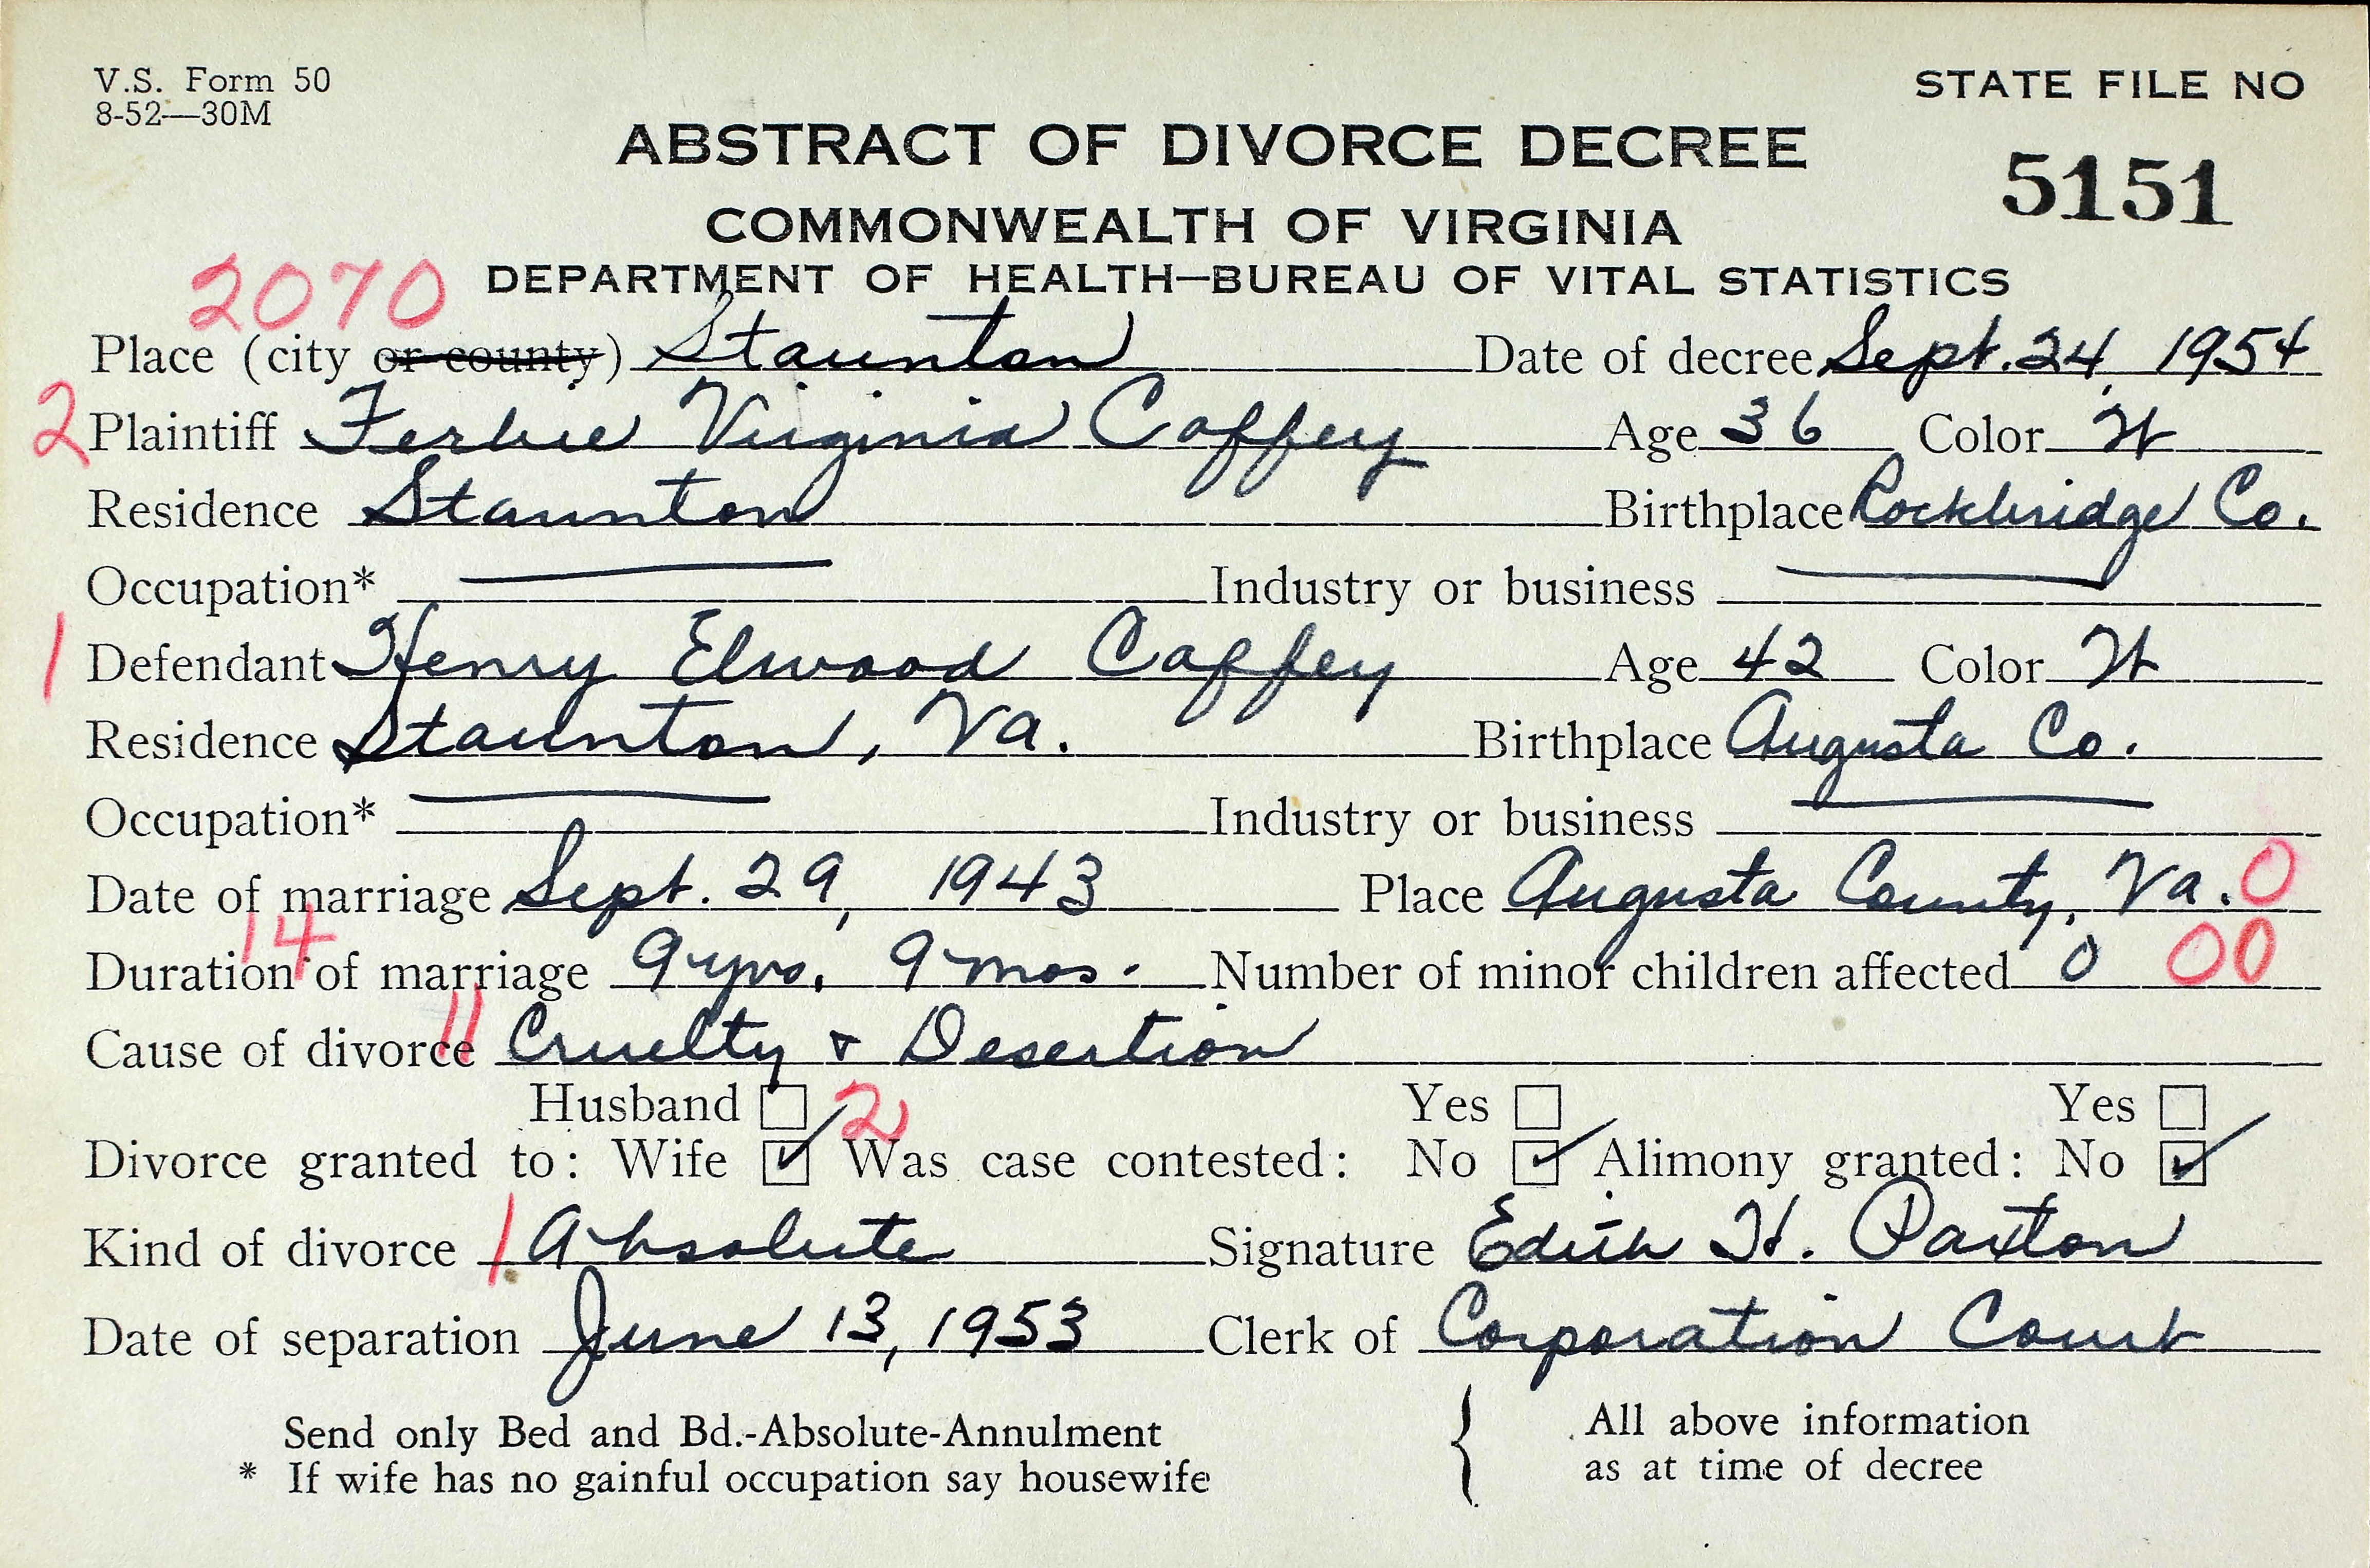 V.S. Form 50
8-52—30M
STATE FILE NO
5151
ABSTRACT OF DIVORCE DECREE
COMMONWEALTH OF VIRGINIA
DEPARTMENT OF HEALTH—BUREAU OF VITAL STATISTICS
2070
Place (city or county) Staunton Date of decree Sept. 24, 1954
2 Plaintiff Ferbie Virginia Coffey Age 36 Color W
Residence Staunton Birthplace Rockbridge Co.
Occupation* Industry or business
1 Defendant Henry Elwood Coffey Age 42 Color W
Residence Staunton, Va. Birthplace Augusta Co.
Occupation* Industry or business
Date of marriage Sept. 29, 1943 Place Augusta County, Va. 0
14
Duration of marriage 9 yrs. 9 mos. Number of minor children affected 0 00
11
Cause of divorce Cruelty & Desertion
Husband 2 Yes Yes
Divorce granted to: Wife ✓ Was case contested: No ✓ Alimony granted: No ✓
Kind of divorce 1 Absolute Signature Edith H. Paxton
Date of separation June 13, 1953 Clerk of Corporation Court
Send only Bed and Bd.-Absolute-Annulment { All above information
* If wife has no gainful occupation say housewife as at time of decree